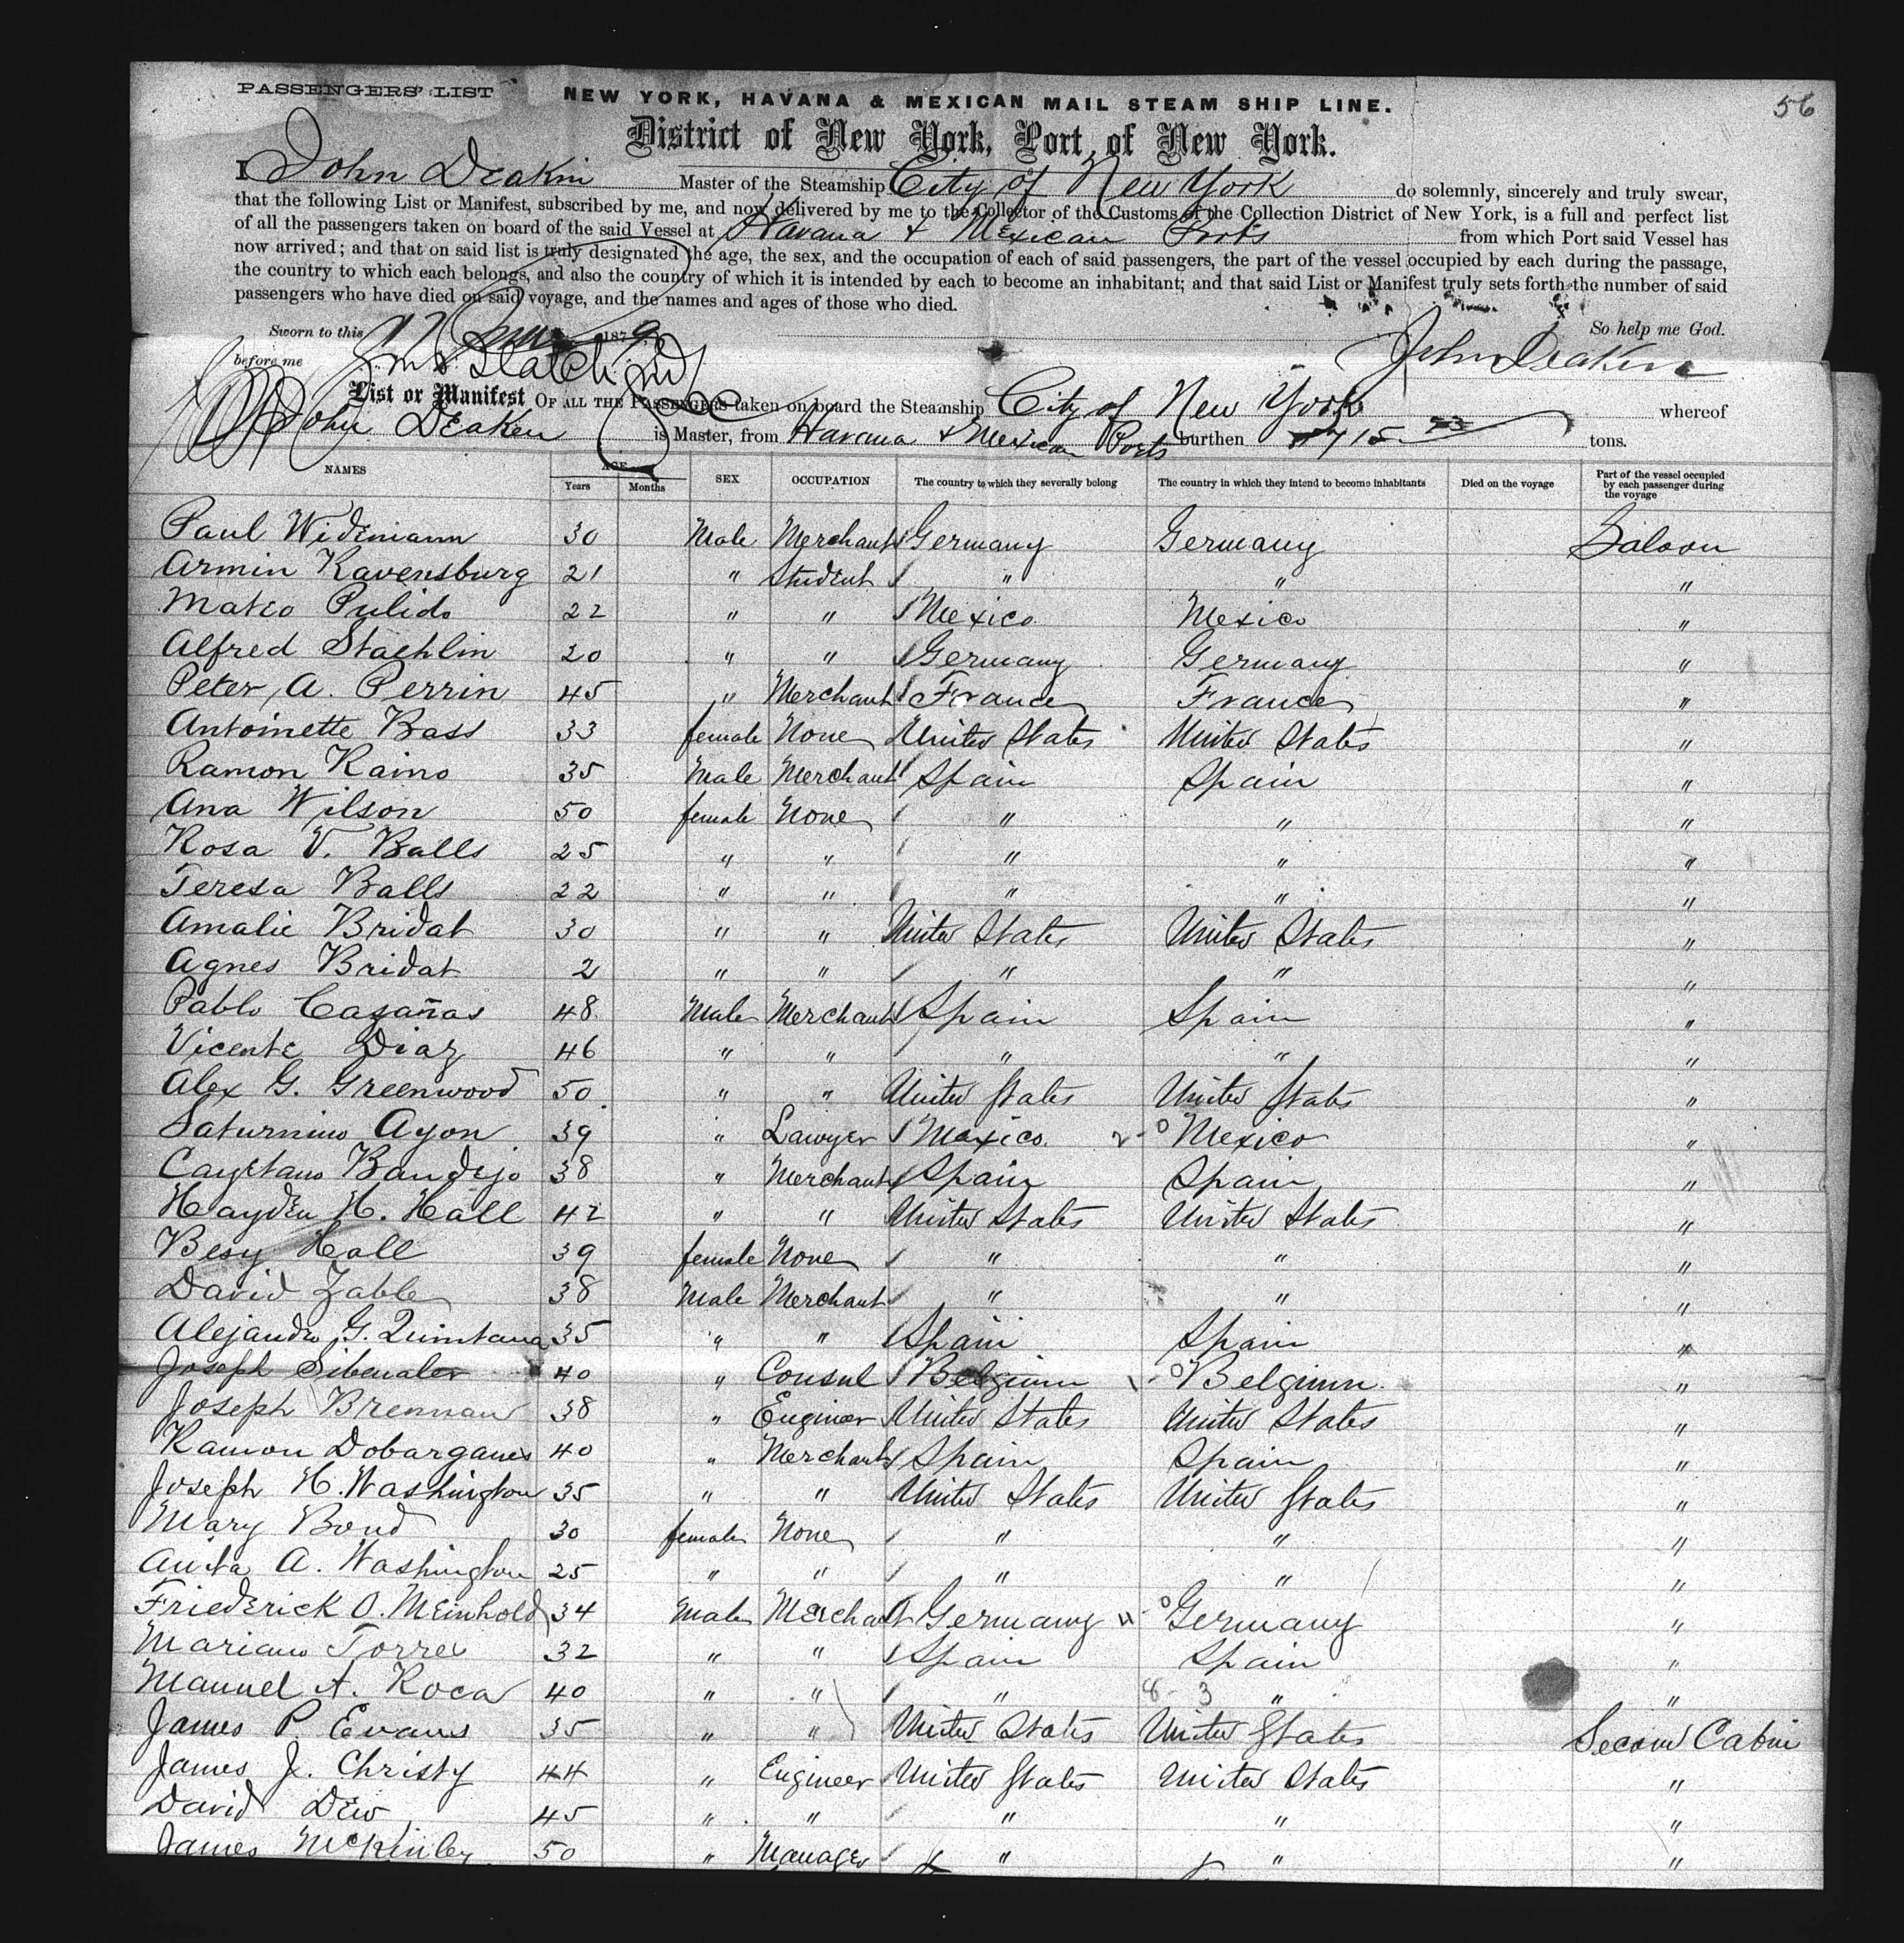 PASSENGERS' LIST NEW YORK, HAVANA & MEXICAN MAIL STEAM SHIP LINE. 56
District of New York, Port of New York.
I John Deakin Master of the Steamship City of New York do solemnly, sincerely and truly swear,
that the following List or Manifest, subscribed by me, and now delivered by me to the Collector of the Customs of the Collection District of New York, is a full and perfect list
of all the passengers taken on board of the said Vessel at Havana & Mexican Ports from which Port said Vessel has
now arrived; and that on said list is truly designated the age, the sex, and the occupation of each of said passengers, the part of the vessel occupied by each during the passage,
the country to which each belongs, and also the country of which it is intended by each to become an inhabitant; and that said List or Manifest truly sets forth the number of said
passengers who have died on said voyage, and the names and ages of those who died.
Sworn to this 17 1879 So help me God.
before me John Deakin
List or Manifest OF ALL THE PASSENGERS taken on board the Steamship City of New York whereof
John Deaken is Master, from Havana & Mexican Ports burthen 1715 tons.
NAMES AGE Years Months SEX OCCUPATION The country to which they severally belong The country in which they intend to become inhabitants Died on the voyage Part of the vessel occupied by each passenger during the voyage
Paul Widemann 30 Male Merchant Germany Germany Saloon
Armin Ravensburg 21 " Student " " "
Mateo Pulido 22 " " Mexico Mexico "
Alfred Staehlin 20 " " Germany Germany "
Peter A. Perrin 45 " Merchant France France "
Antoinette Bass 33 female None United States United States "
Ramon Raino 35 Male Merchant Spain Spain "
Ana Wilson 50 female None " " "
Rosa V. Balls 25 " " " " "
Teresa Balls 22 " " " " "
Amalie Bridat 30 " " United States United States "
Agnes Bridat 2 " " " " "
Pablo Cazañas 48 Male Merchant Spain Spain "
Vicente Diaz 46 " " " " "
Alex G. Greenwood 50 " " United States United States "
Saturnino Ayon 39 " Lawyer Mexico Mexico "
Cayetano Bandejo 38 " Merchant Spain Spain "
Hayden H. Hall 42 " " United States United States "
Besy Hall 39 female None " " "
David Zable 38 Male Merchant " " "
Alejandro G. Quintana 35 " " Spain Spain "
Joseph Sibenaler 40 " Consul Belgium Belgium "
Joseph Brennan 38 " Enginer United States United States "
Ramon Dobarganes 40 " Merchant Spain Spain "
Joseph H. Washington 35 " " United States United States "
Mary Bond 30 female None " " "
Anita A. Washington 25 " " " " "
Friederick O. Meinhold 34 Male Merchant Germany Germany "
Mariano Torre 32 " " Spain Spain "
Manuel A. Roca 40 " " " 8-3 " "
James P. Evans 35 " " United States United States Second Cabin
James J. Christy 44 " Engineer United States United States "
David Dew 45 " " " " "
James McKinley 50 " Manager " " "